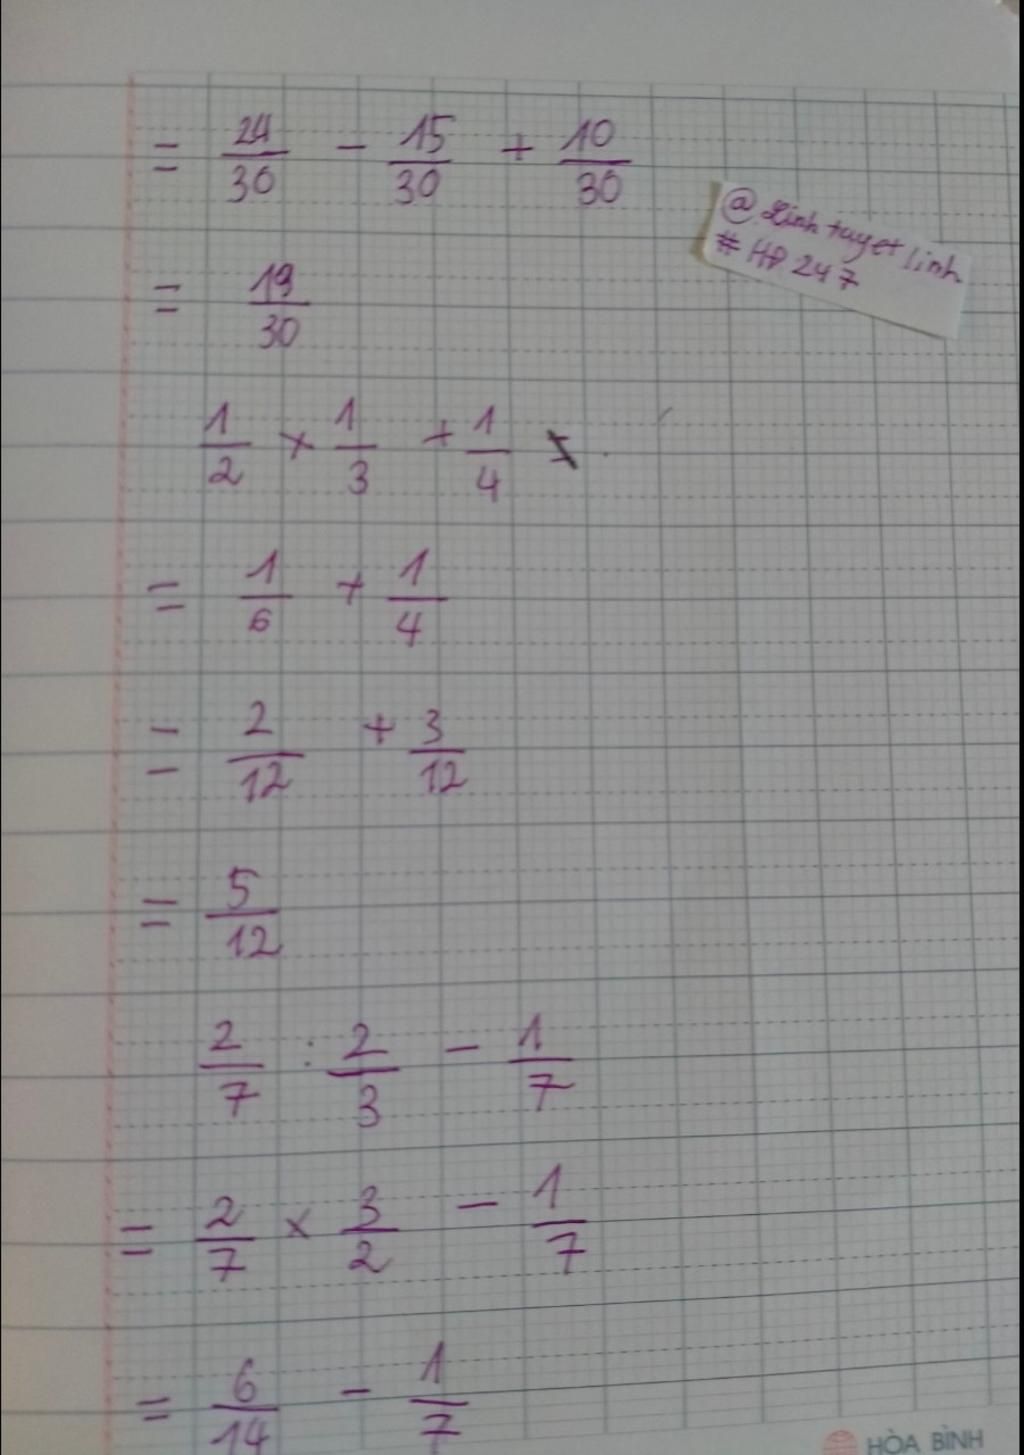 = 24/30 - 15/30 + 10/30
@Linh tuyet linh
# HĐ 247
= 19/30
1/2 × 1/3 + 1/4
= 1/6 + 1/4
= 2/12 + 3/12
= 5/12
2/7 : 2/3 - 1/7
= 2/7 × 3/2 - 1/7
= 6/14 - 1/7
HÒA BÌNH